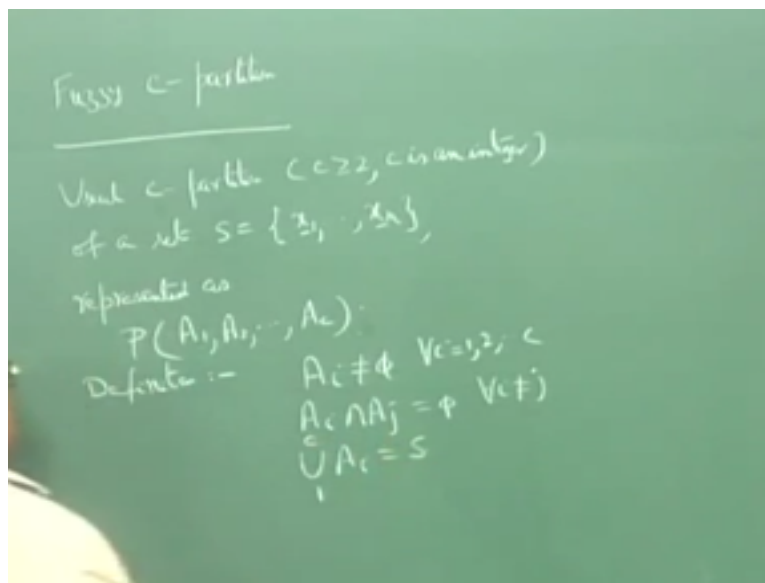 Fuzzy c-partition
Usual c-partition (c≥2, c is an integer)
of a set S = {x₁, .., xₙ},
represented as
P(A₁, A₂, .., A_c).
Definition :- A_i ≠ φ ∀i=1,2,.. c
A_i ∩ A_j = φ ∀i≠j
c
∪ A_i = S
1